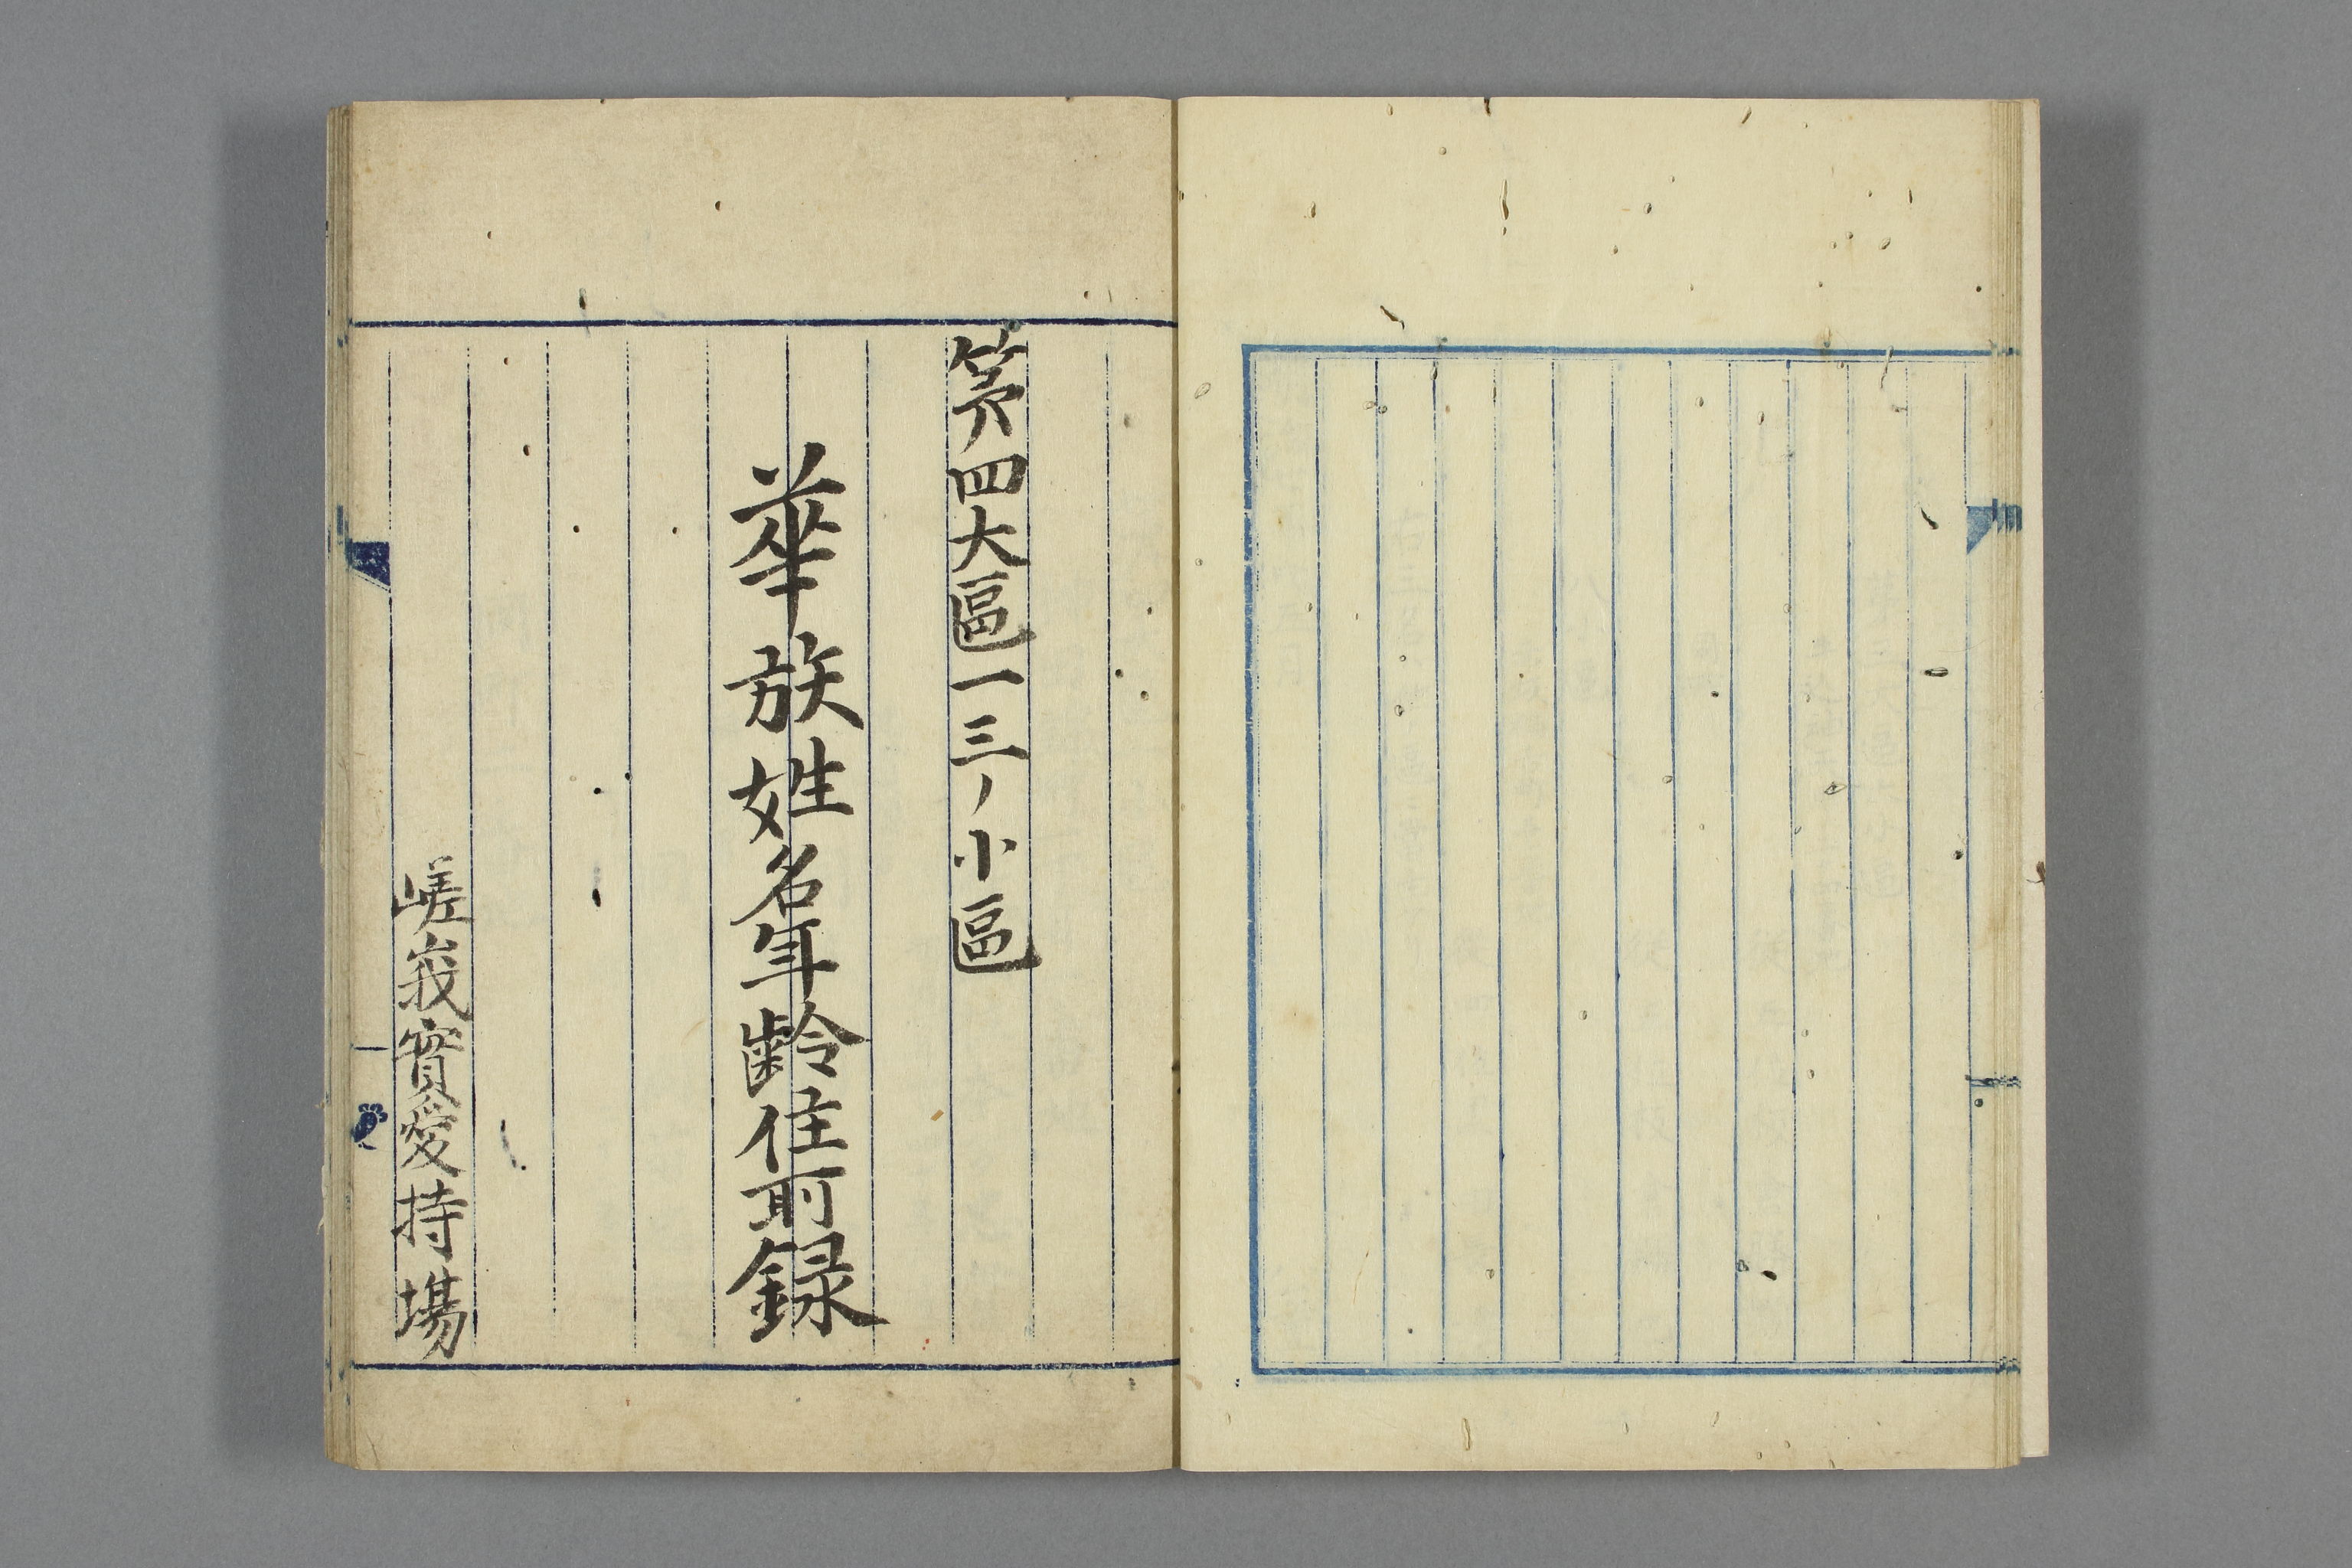 第四大區一三ノ小區
華族姓名年齢住所録
嵯峩實愛持場